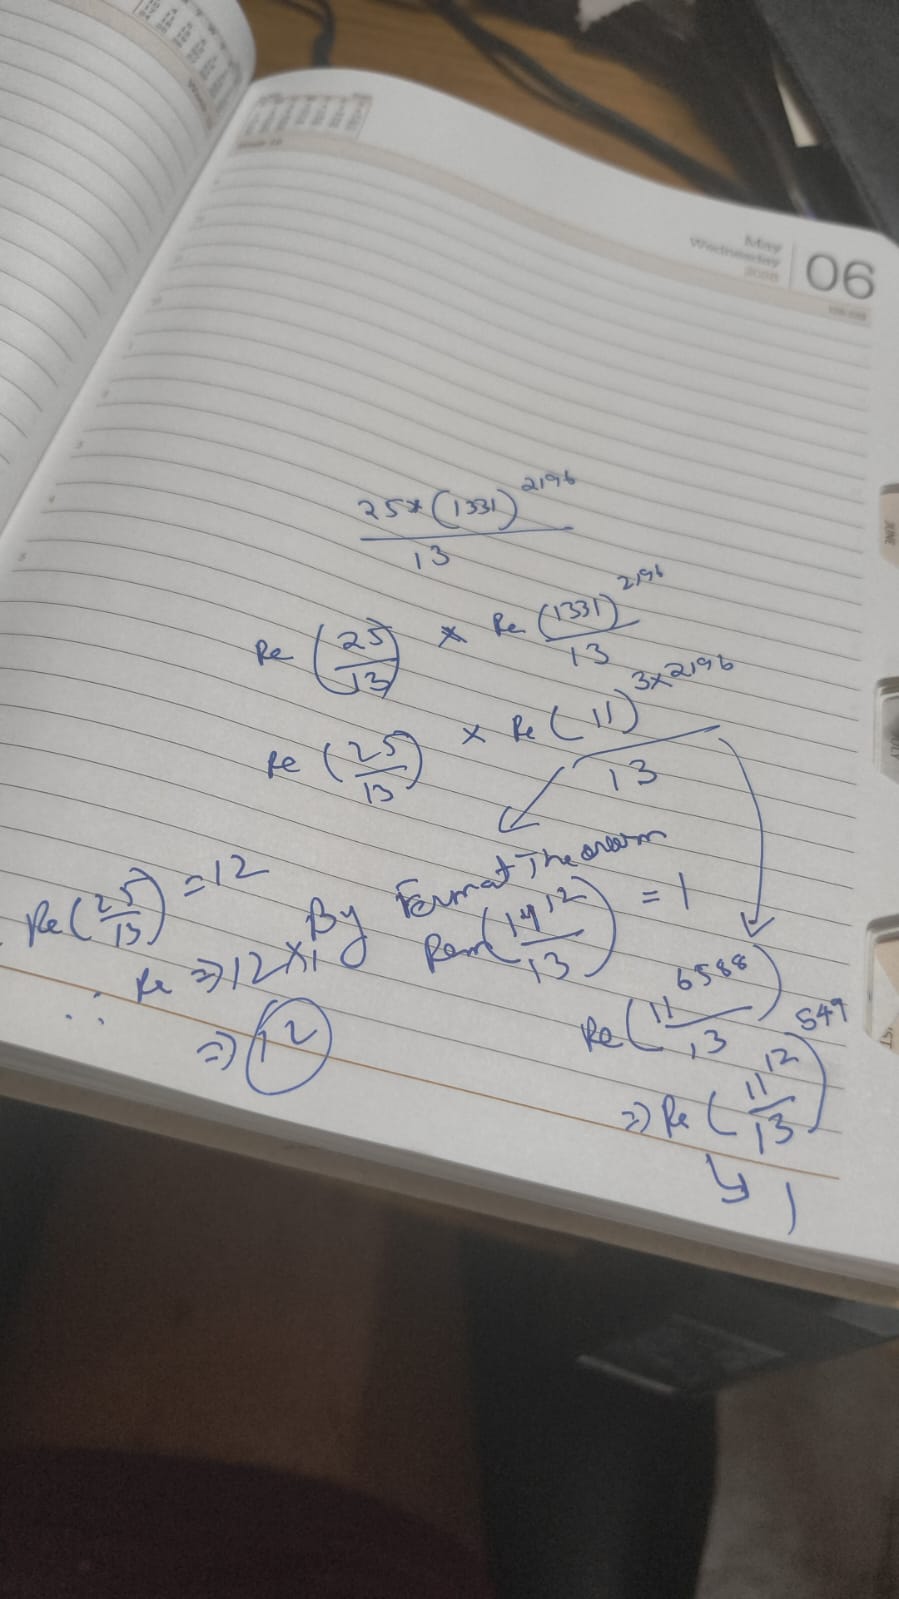 May
Wednesday
2026
06
JUNE
25 * (1331)^2196
13
Re (25/13) * Re (1331)^2196 / 13
Re (25/13) × Re (11)^3×2196 / 13
By Fermat Theorem
Rem (11^12 / 13) = 1
Re (25/13) = 12
∴ Re ⇒ 12 × 1
⇒ 12
Re (11^6588 / 13)
⇒ Re (11^12 / 13)^549
↳ 1